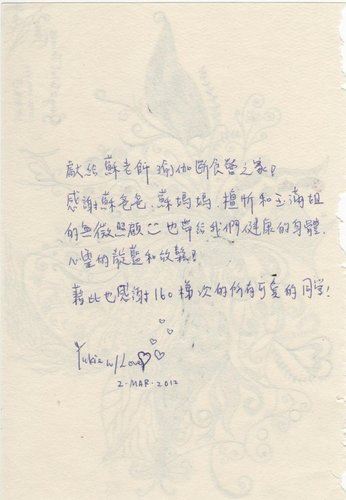 獻給蘇老師瑜伽斷食營之家!
感謝蘇爸爸、蘇媽媽、檀昕和玉滿姐
的無微照顧 也帶給我們健康的身體.
心靈的 和放鬆!
藉此也感謝160梯次的所有可愛的同学!
Yukie w/ Love
2. MAR. 2012